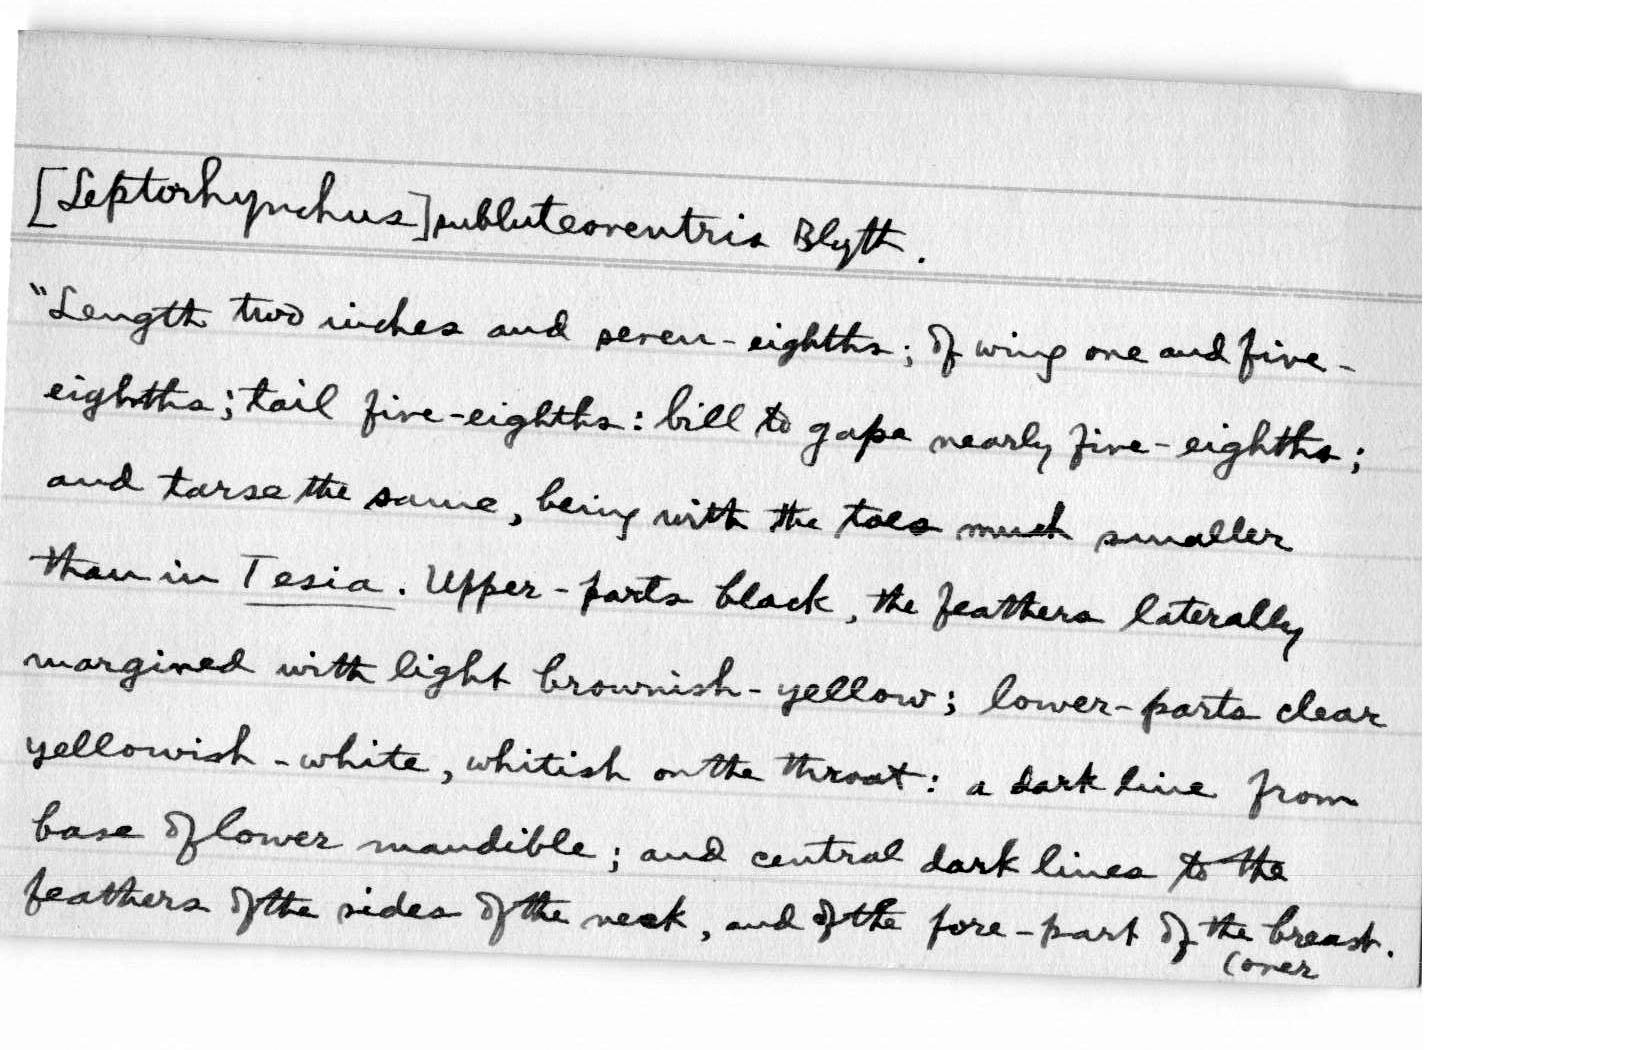 [Leptorhynchus] subluteoventris Blyth.
"Length two inches and seven-eighths; of wing one and five-
eighths; tail five-eighths: bill to gape nearly five-eighths;
and tarse the same, being with the toes much smaller
than in Tesia. Upper-parts black, the feathers laterally
margined with light brownish-yellow; lower-parts clear
yellowish-white, whitish on the throat: a dark line from
base of lower mandible; and central dark lines to the
feathers of the sides of the neck, and of the fore-part of the breast.
(over